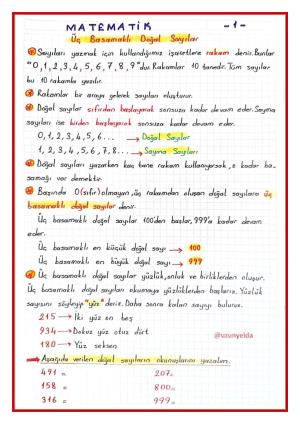 MATEMATİK -1-
Üç Basamaklı Doğal Sayılar
Sayıları yazmak için kullandığımız işaretlere rakam denir. Bunlar
"0,1,2,3,4,5,6,7,8,9"dur. Rakamlar 10 tanedir. Tüm sayılar
bu 10 rakamla yazılır.
Rakamlar bir araya gelerek sayıları oluşturur.
Doğal sayılar sıfırdan başlayarak sonsuza kadar devam eder. Sayma
sayıları ise birden başlayarak sonsuza kadar devam eder.
0,1,2,3,4,5,6... → Doğal Sayılar
1,2,3,4,5,6,7,8... → Sayma Sayıları
Doğal sayıları yazarken kaç tane rakam kullanıyorsak, o kadar ba-
samağı var demektir.
Başında 0(sıfır) olmayan, üç rakamdan oluşan doğal sayılara üç
basamaklı doğal sayılar denir.
Üç basamaklı doğal sayılar 100'den başlar, 999'a kadar devam
eder.
Üç basamaklı en küçük doğal sayı → 100
Üç basamaklı en büyük doğal sayı → 999
Üç basamaklı doğal sayılar yüzlük, onluk ve birliklerden oluşur.
Üç basamaklı doğal sayıları okumaya yüzlüklerden başlarız. Yüzlük
sayısını söyleyip "yüz" deriz. Daha sonra kalan sayıyı buluruz.
215 → İki yüz on beş
934 → Dokuz yüz otuz dört
180 → Yüz seksen
@uzunyelda
→ Aşağıda verilen doğal sayıların okunuşlarını yazalım.
491 = 207 =
158 = 800 =
316 = 999 =